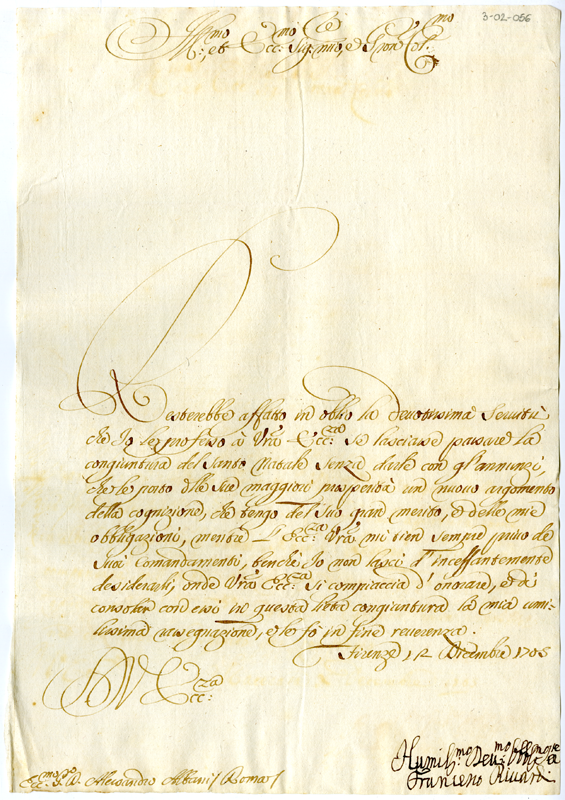 3-02-056
Ill:mo et Ecc:mo Sig:re mio, e Pron Col:mo
Resterebbe affatto in oblio la devotissima Servitù,
che Io le professo à Vrã Ecc:za se lasciasse passare la
congiuntura del Santo Natale senza darle con gl'annunzi,
che le porto delle Sue maggiori prosperità un nuovo argomento
della cognizione, che tengo del Suo gran merito, e delle mie
obbligazioni, mentre l'Ecc:za Vrã mi tien sempre privo de
Suoi Comandamenti, benche Io non lasci d'incessantemente
desiderarli, onde Vrã Ecc:za si compiaccia d'onorare, et di
consolar con essi in questa lieta congiuntura la mia umi-
lissima rassegnazione, e le fò in fine reverenza.
Firenze 12 Dicembre 1705
D V Ecc:za
Humil:mo Dev:mo
Francesco
Alessandro Albani Roma